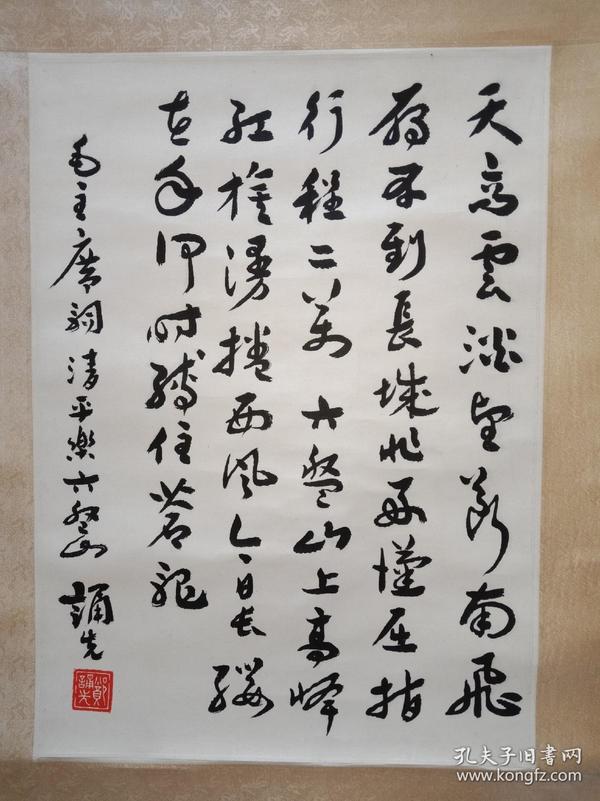 天高雲淡望斷南飛
雁不到長城非好漢屈指
行程二萬 六盤山上高峰
紅旗漫捲西風今日長纓
在手何時縛住蒼龍
毛主席詞 清平樂六盤山 誦先
鄭誦先
孔夫子旧書网
www.kongfz.com